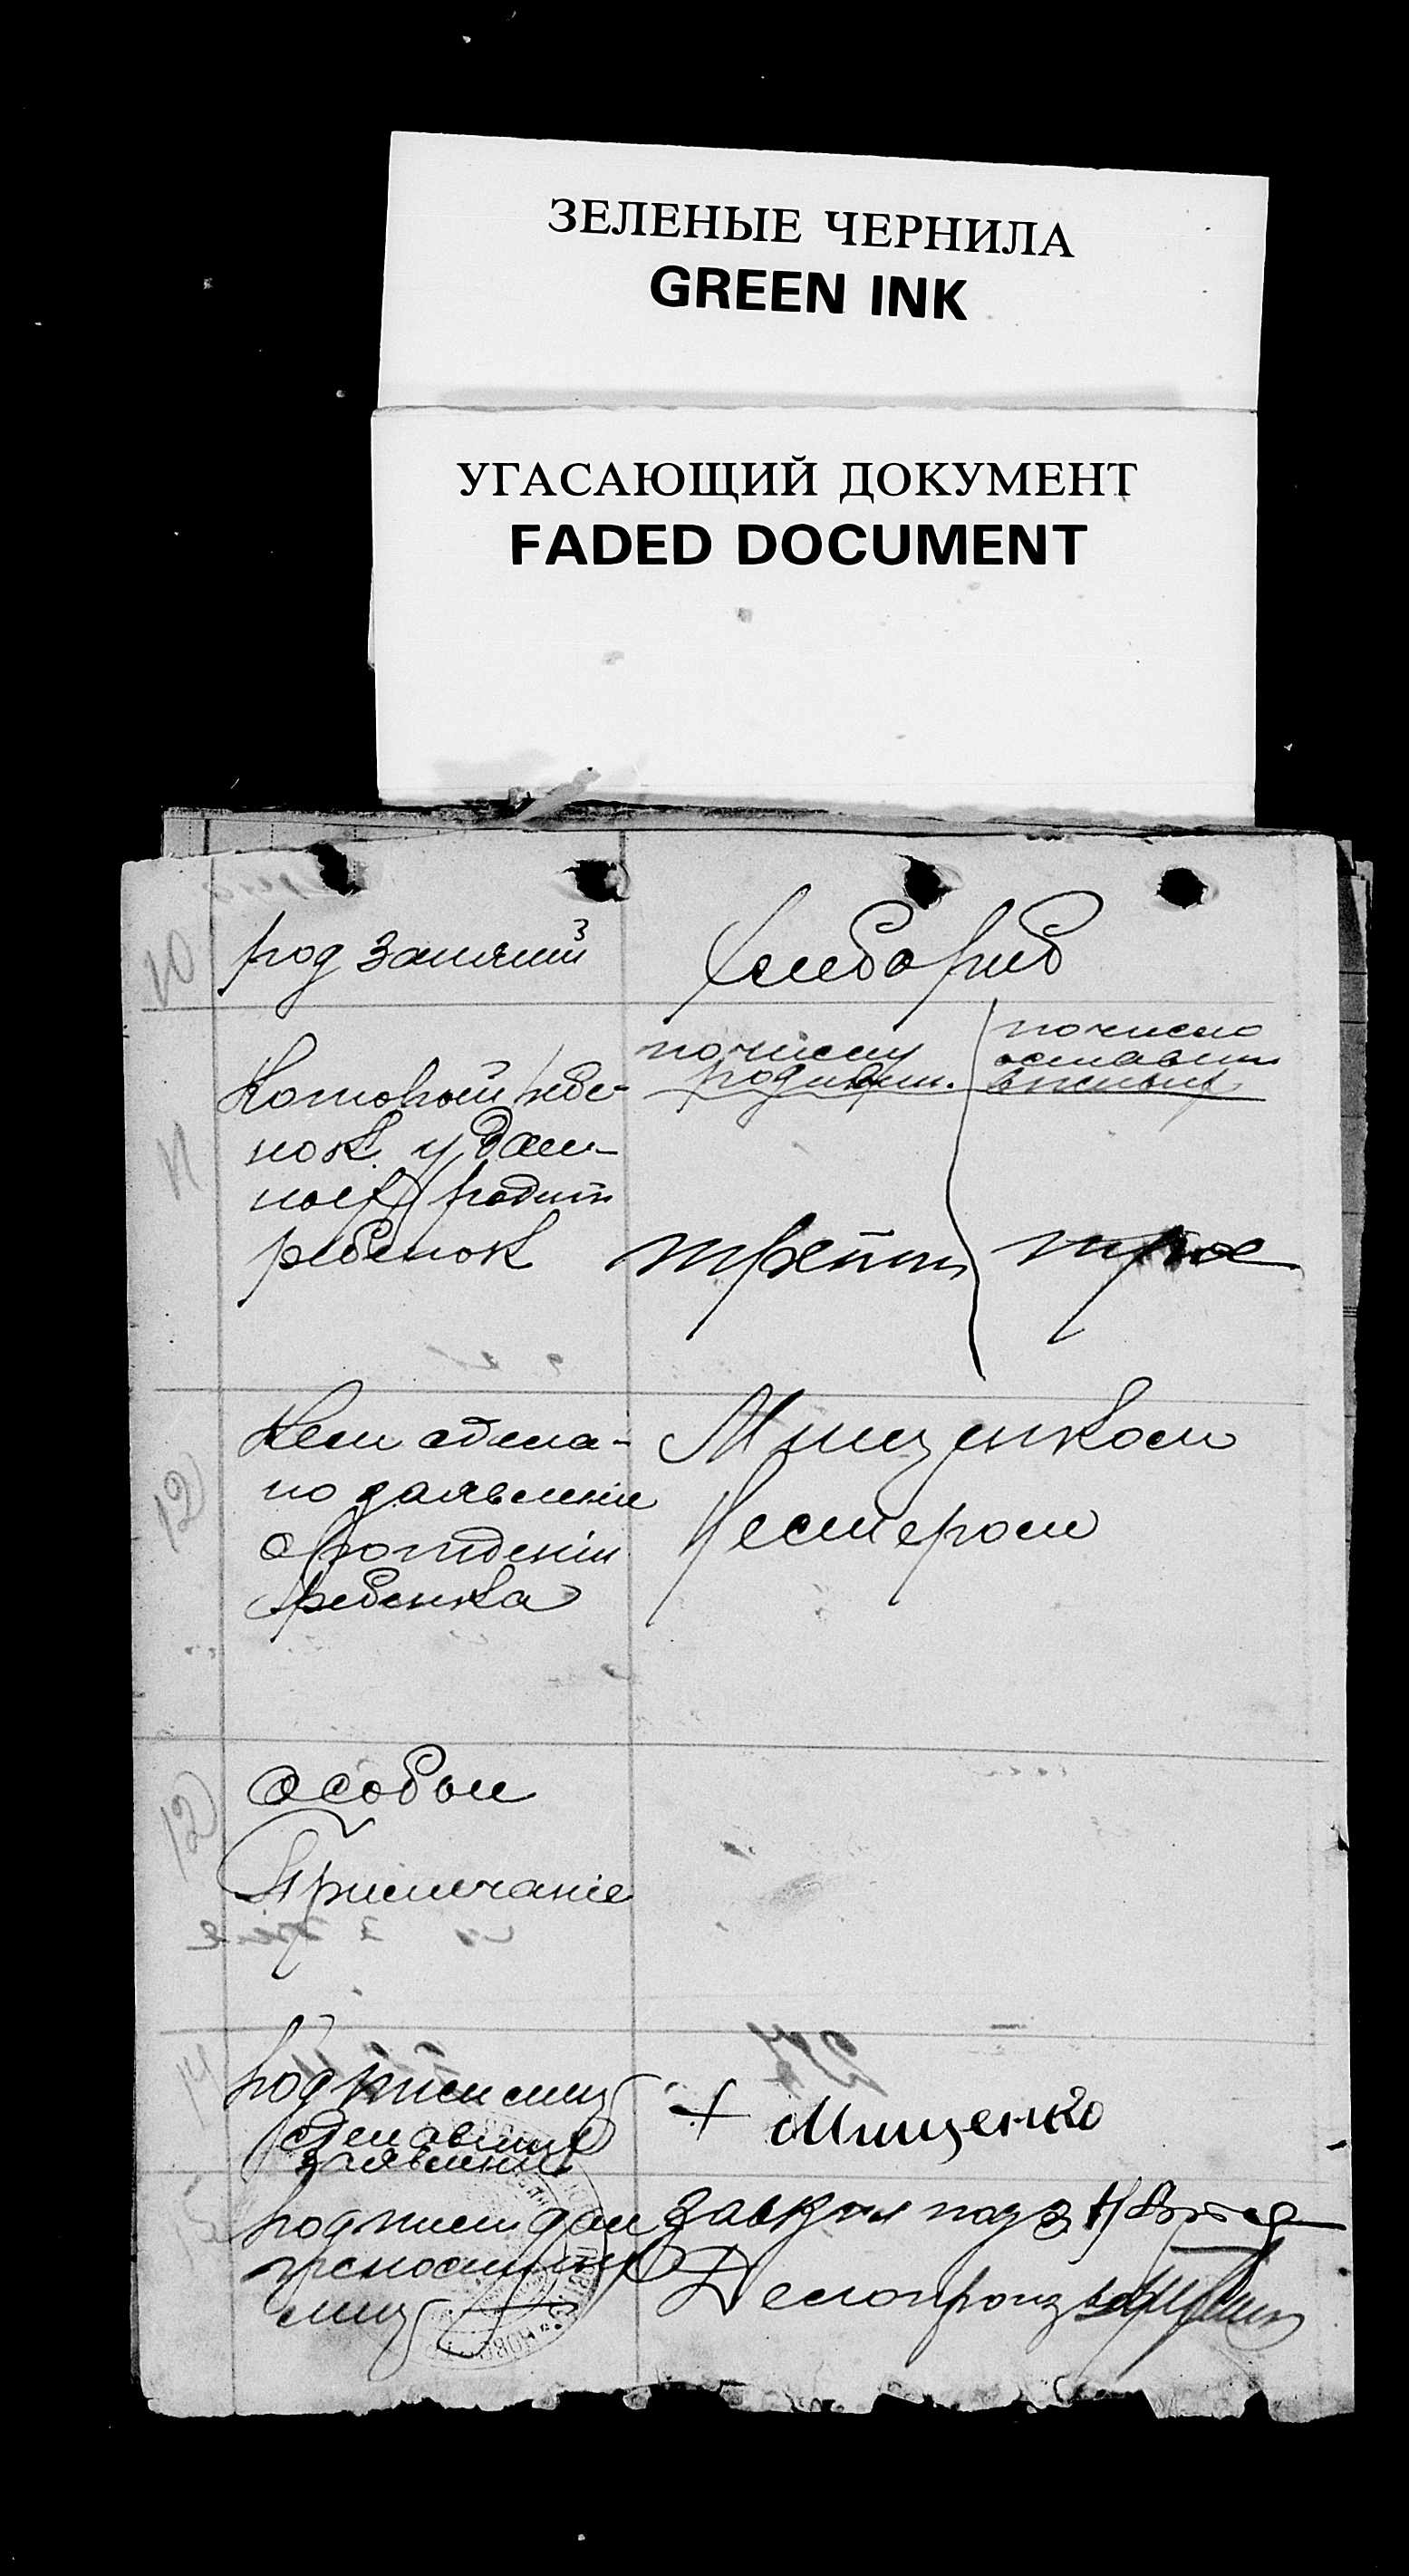 ЗЕЛЕНЫЕ ЧЕРНИЛА
GREEN INK
УГАСАЮЩИЙ ДОКУМЕНТ
FADED DOCUMENT
10
род занятий
Хлебороб
Который ребе-
нок у дан-
ной родит
ребенок
по числу
родивш.
по числу
оставш
в живых
11
третий
трое
12
Кем сдела-
но заявление
о рождении
ребенка
Мищенком
Нестером
12
Особые
Примечаніе
14
Подписи лиц
сделавших
заявление
+ Мищенко
Подписи дол
жностных
лиц
Завзаг
Делопроизвод